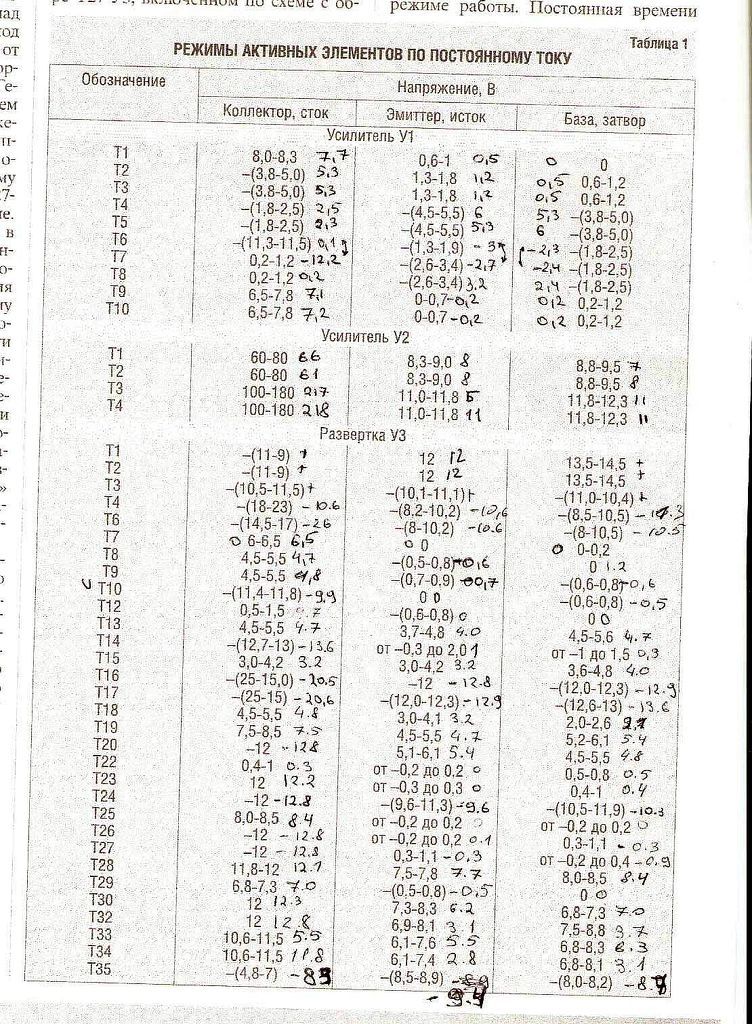 режиме работы. Постоянная времени
Таблица 1
РЕЖИМЫ АКТИВНЫХ ЭЛЕМЕНТОВ ПО ПОСТОЯННОМУ ТОКУ
Обозначение Напряжение, В
Коллектор, сток Эмиттер, исток База, затвор
Усилитель У1
Т1 8,0-8,3 7,7 0,6-1 0,5 0 0
Т2 –(3,8-5,0) 5,3 1,3-1,8 1,2 0,5 0,6-1,2
Т3 –(3,8-5,0) 5,3 1,3-1,8 1,2 0,5 0,6-1,2
Т4 –(1,8-2,5) 2,5 –(4,5-5,5) 6 5,3 –(3,8-5,0)
Т5 –(1,8-2,5) 2,3 –(4,5-5,5) 5,3 6 –(3,8-5,0)
Т6 –(11,3-11,5) 0,1 –(1,3-1,9) -3 -2,3 –(1,8-2,5)
Т7 0,2-1,2 -12,2 –(2,6-3,4) -2,7 -2,4 –(1,8-2,5)
Т8 0,2-1,2 0,2 –(2,6-3,4) 3,2 2,4 –(1,8-2,5)
Т9 6,5-7,8 7,1 0-0,7 -0,2 0,2 0,2-1,2
Т10 6,5-7,8 7,2 0-0,7 -0,2 0,2 0,2-1,2
Усилитель У2
Т1 60-80 66 8,3-9,0 8 8,8-9,5 7
Т2 60-80 61 8,3-9,0 8 8,8-9,5 8
Т3 100-180 217 11,0-11,8 Б 11,8-12,3 11
Т4 100-180 218 11,0-11,8 11 11,8-12,3 11
Развертка У3
Т1 –(11-9) + 12 12 13,5-14,5 +
Т2 –(11-9) + 12 12 13,5-14,5 +
Т3 –(10,5-11,5) + –(10,1-11,1) + –(11,0-10,4) +
Т4 –(18-23) -10.6 –(8,2-10,2) -10,6 –(8,5-10,5)
Т6 –(14,5-17) -26 –(8-10,2) -10.6 –(8-10,5) -10.5
Т7 0 6-6,5 6,5 0 0 0 0-0,2
Т8 4,5-5,5 4,7 –(0,5-0,8) -0,6 0 1.2
Т9 4,5-5,5 4,8 –(0,7-0,9) -0,7 –(0,6-0,8) -0,6
Т10 –(11,4-11,8) -9,9 0 0 –(0,6-0,8) -0,5
Т12 0,5-1,5 –(0,6-0,8) 0 0 0
Т13 4,5-5,5 4.7 3,7-4,8 4.0 4,5-5,6 4.7
Т14 –(12,7-13) -13.6 от –0,3 до 2,0 1 от –1 до 1,5 0,3
Т15 3,0-4,2 3.2 3,0-4,2 3.2 3,6-4,8 4.0
Т16 –(25-15,0) -20.5 –12 -12.8 –(12,0-12,3) -12.9
Т17 –(25-15) -20,6 –(12,0-12,3) -12.9 –(12,6-13) -13.6
Т18 4,5-5,5 4.8 3,0-4,1 3.2 2,0-2,6
Т19 7,5-8,5 7.5 4,5-5,5 4.7 5,2-6,1 5.4
Т20 –12 -12.8 5,1-6,1 5.4 4,5-5,5 4.8
Т22 0,4-1 0.3 от –0,2 до 0,2 0 0,5-0,8 0.5
Т23 12 12.2 от –0,3 до 0,3 0 0,4-1 0.4
Т24 –12 -12.8 –(9,6-11,3) -9.6 –(10,5-11,9) -10.3
Т25 8,0-8,5 8.4 от –0,2 до 0,2 0 от –0,2 до 0,2 0
Т26 –12 -12.8 от –0,2 до 0,2 0.1 0,3-1,1 -0.3
Т27 –12 -12.8 0,3-1,1 -0.3 от –0,2 до 0,4 -0.9
Т28 11,8-12 12.1 7,5-7,8 7.7 8,0-8,5 8.4
Т29 6,8-7,3 7.0 –(0,5-0,8) -0,5 0 0
Т30 12 12.3 7,3-8,3 6.2 6,8-7,3 7.0
Т32 12 12.8 6,9-8,1 3.1 7,5-8,8 3.7
Т33 10,6-11,5 5.5 6,1-7,6 5.5 6,8-8,3 6.3
Т34 10,6-11,5 11.8 6,1-7,4 2.8 6,8-8,1 3.1
Т35 –(4,8-7) –(8,5-8,9) –(8,0-8,2)
-9.4